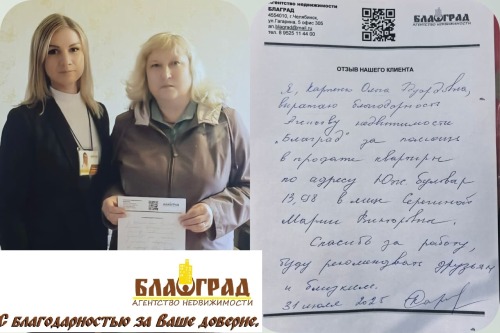 БЛАГРАД
АГЕНТСТВО НЕДВИЖИМОСТИ
С благодарностью за Ваше доверие.
агентство недвижимости
БЛАГРАД
454010, г.Челябинск,
ул.Гагарина, 5 офис 306
т. 8 9525 11 44 00
БЛАГРАД
АГЕНТСТВО НЕДВИЖИМОСТИ
ОТЗЫВ НАШЕГО КЛИЕНТА
Я, Ольга Эдуардовна,
выражаю благодарность
Агентству недвижимости
„Блаград" за помощь
в продаже квартиры
по адресу Юж. бульвар
в лице Сергиной
Марии Викторовны.
Спасибо за работу,
буду рекомендовать друзьям
и близким.
31 июля 2025